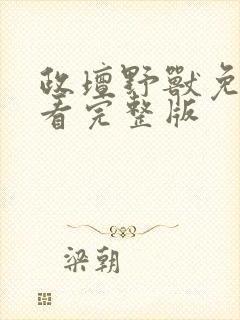 政壇野獸免
看完整版
梁朝